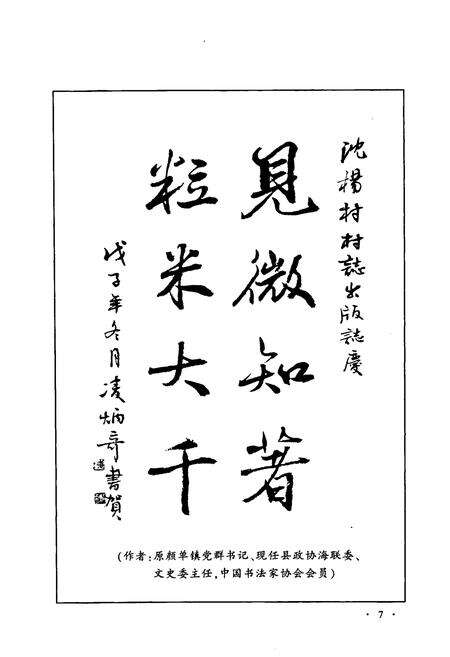 沈楊村村誌出版誌慶
見微知著
粒米大千
戊子年冬月凌炳奇書賀
(作者:原颜单镇党群书记、现任县政协海联委、
文史委主任,中国书法家协会会员)
· 7 ·